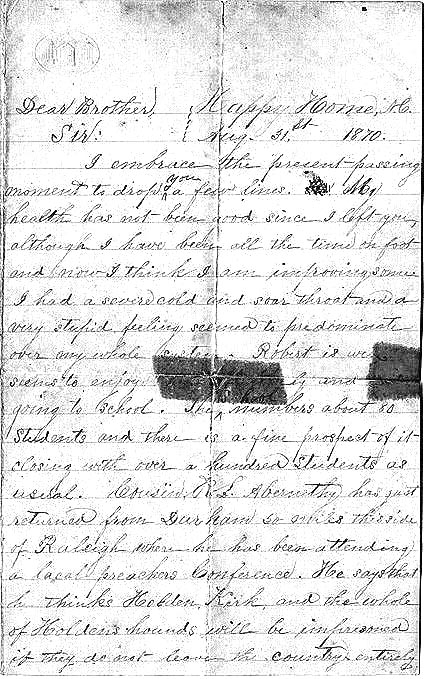 Dear Brother, Happy Home, N.C.
Sir: Aug. 31st 1870.
I embrace the present passing
moment to drop you a few lines. My
health has not been good since I left you,
although I have been all the time on foot
and now I think I am improving some
I had a severe cold and soar throat and a
very stupid feeling seemed to predominate
over my whole system. Robert is well
seems to enjoy and
going to school. The school numbers about 80
students and there is a fine prospect of it
closing with over a hundred students as
usual. Cousin R.L. Abernethy has just
returned from Durham 30 miles this side
of Raleigh where he has been attending
a local preachers Conference. He says that
he thinks Holden, Kirk, and the whole
of Holdens hounds will be imprisoned
if they do not leave the country entirely,